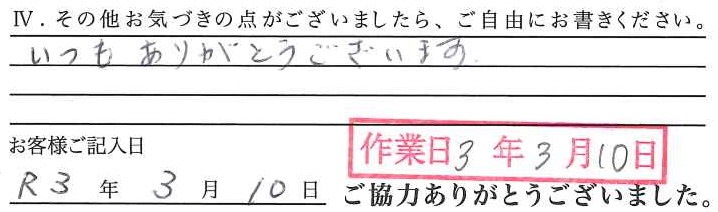 Ⅳ．その他お気づきの点がございましたら、ご自由にお書きください。
いつもありがとうございます
お客様ご記入日
作業日3年3月10日
R3年3月10日
ご協力ありがとうございました。